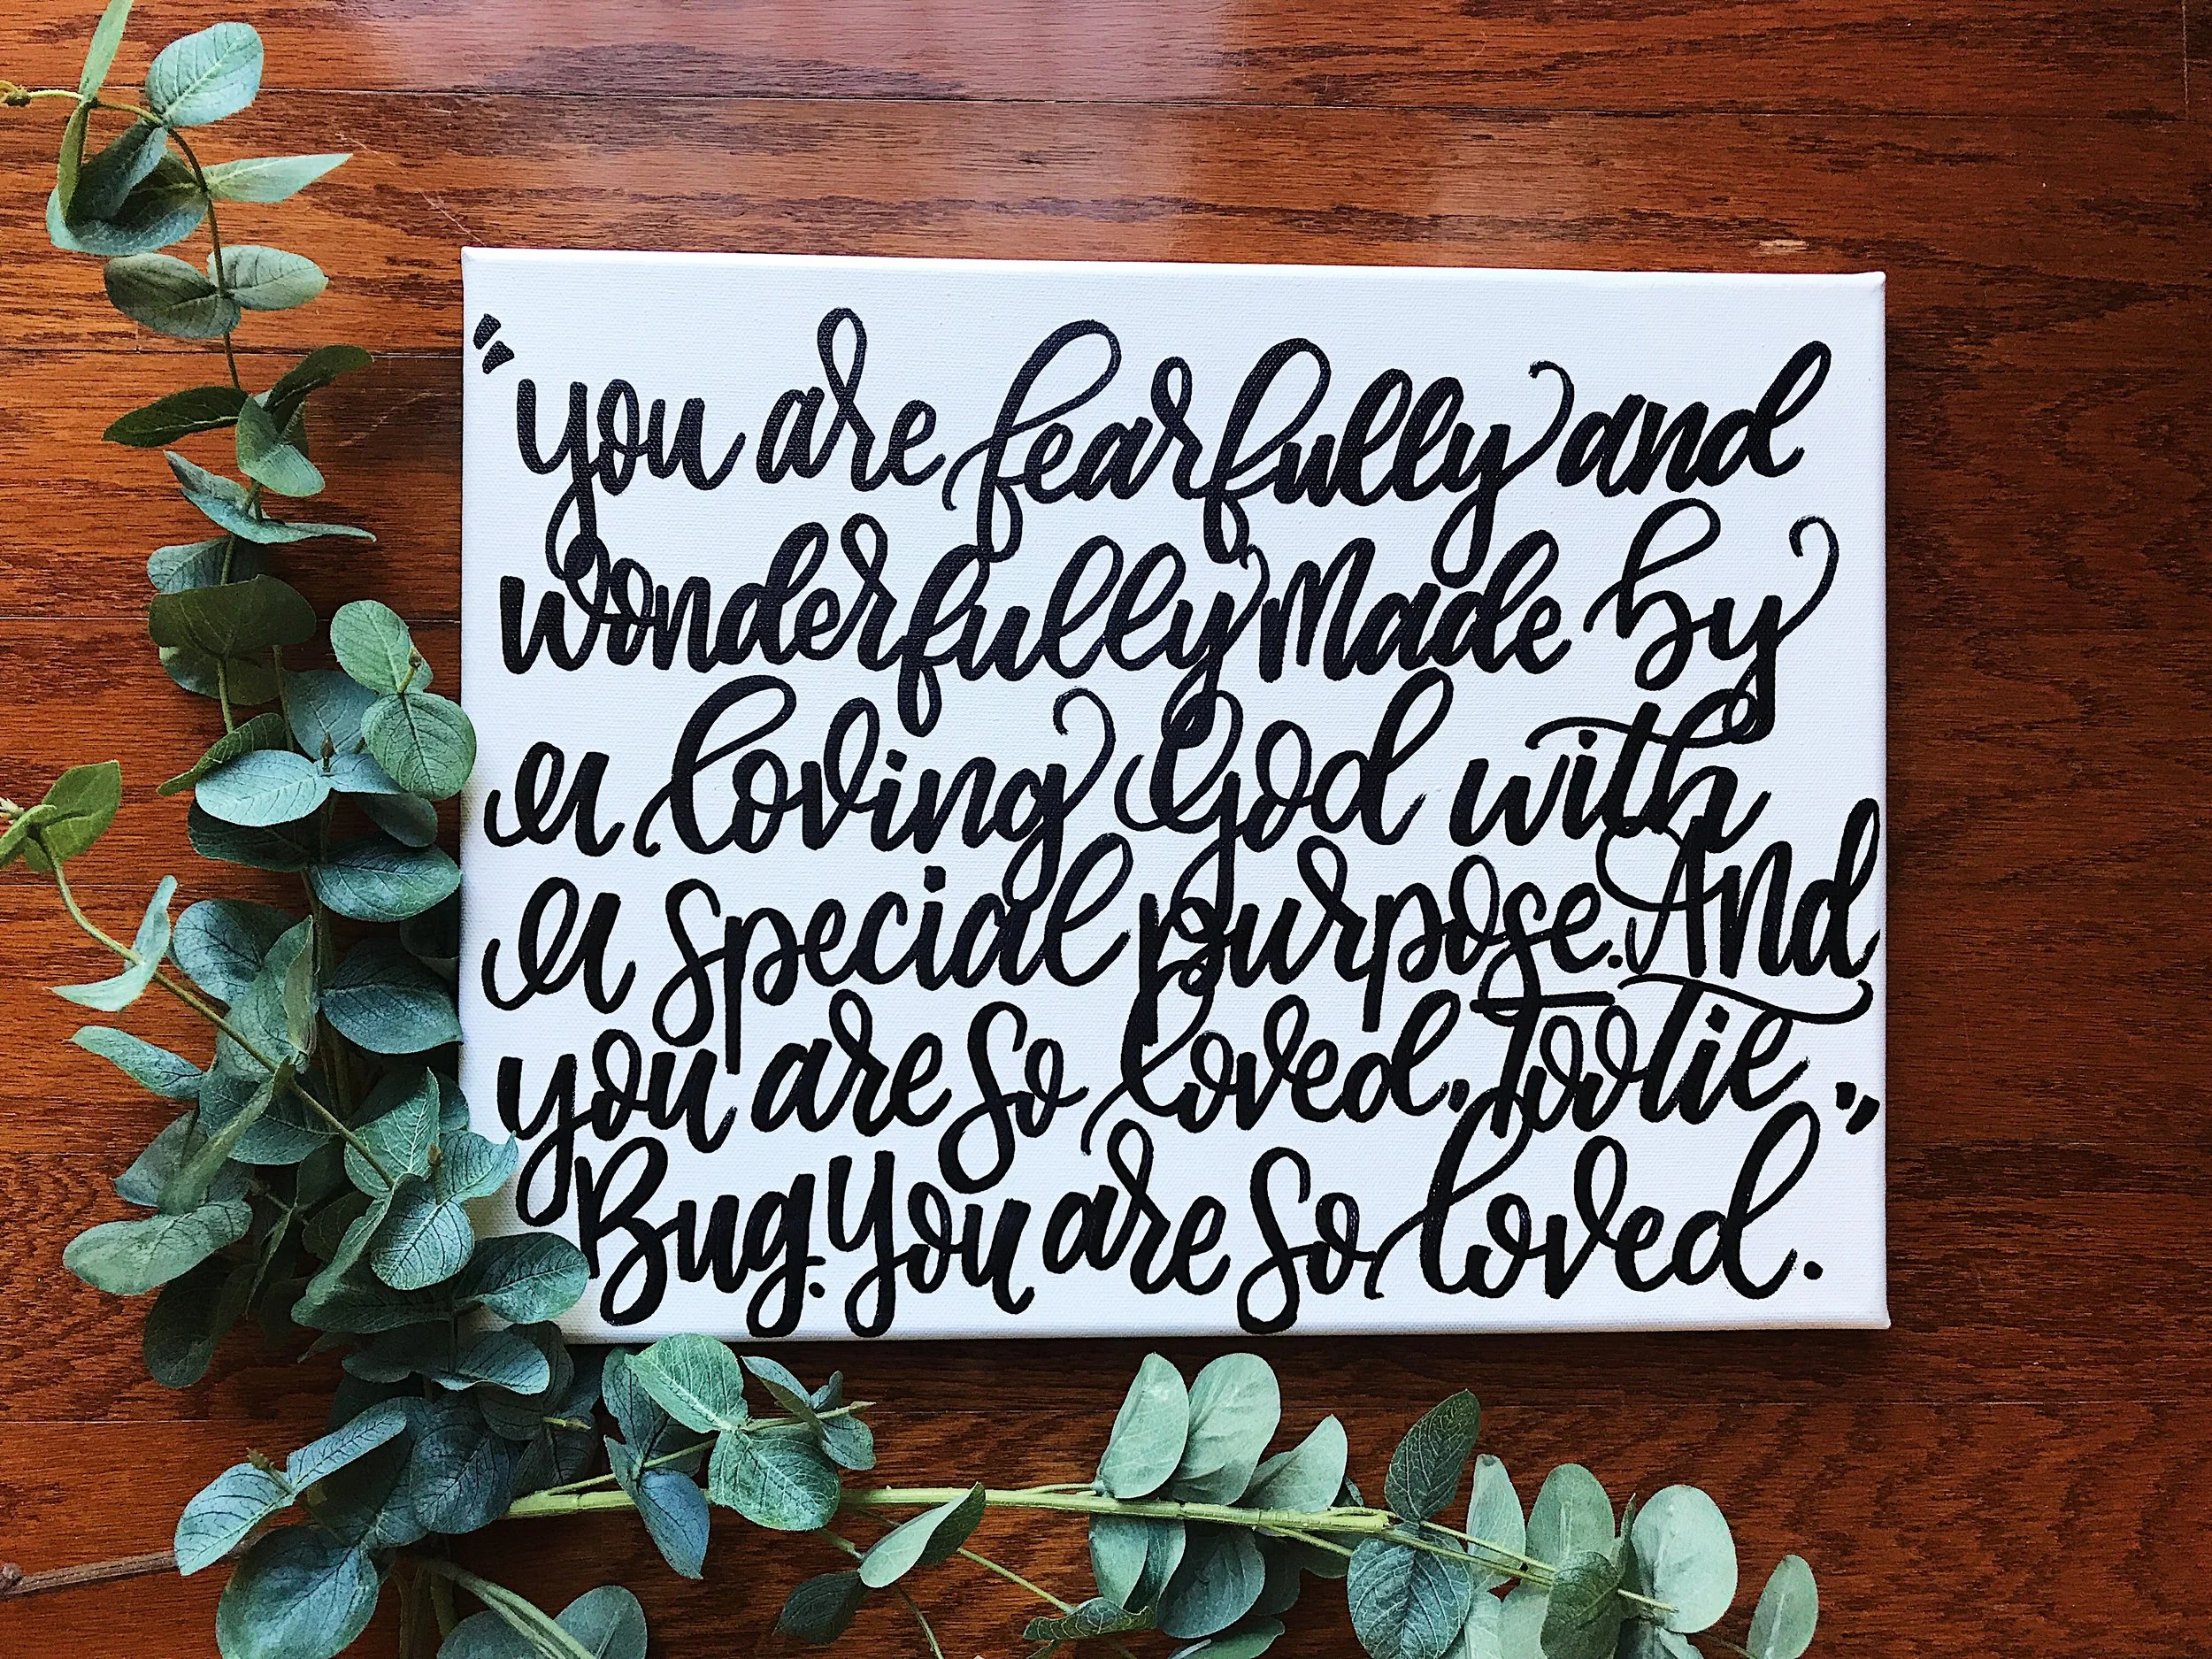 "you are fearfully and
wonderfully Made by
a loving God with
a special purpose. And
you are so loved, Tootie
Bug. You are so loved."